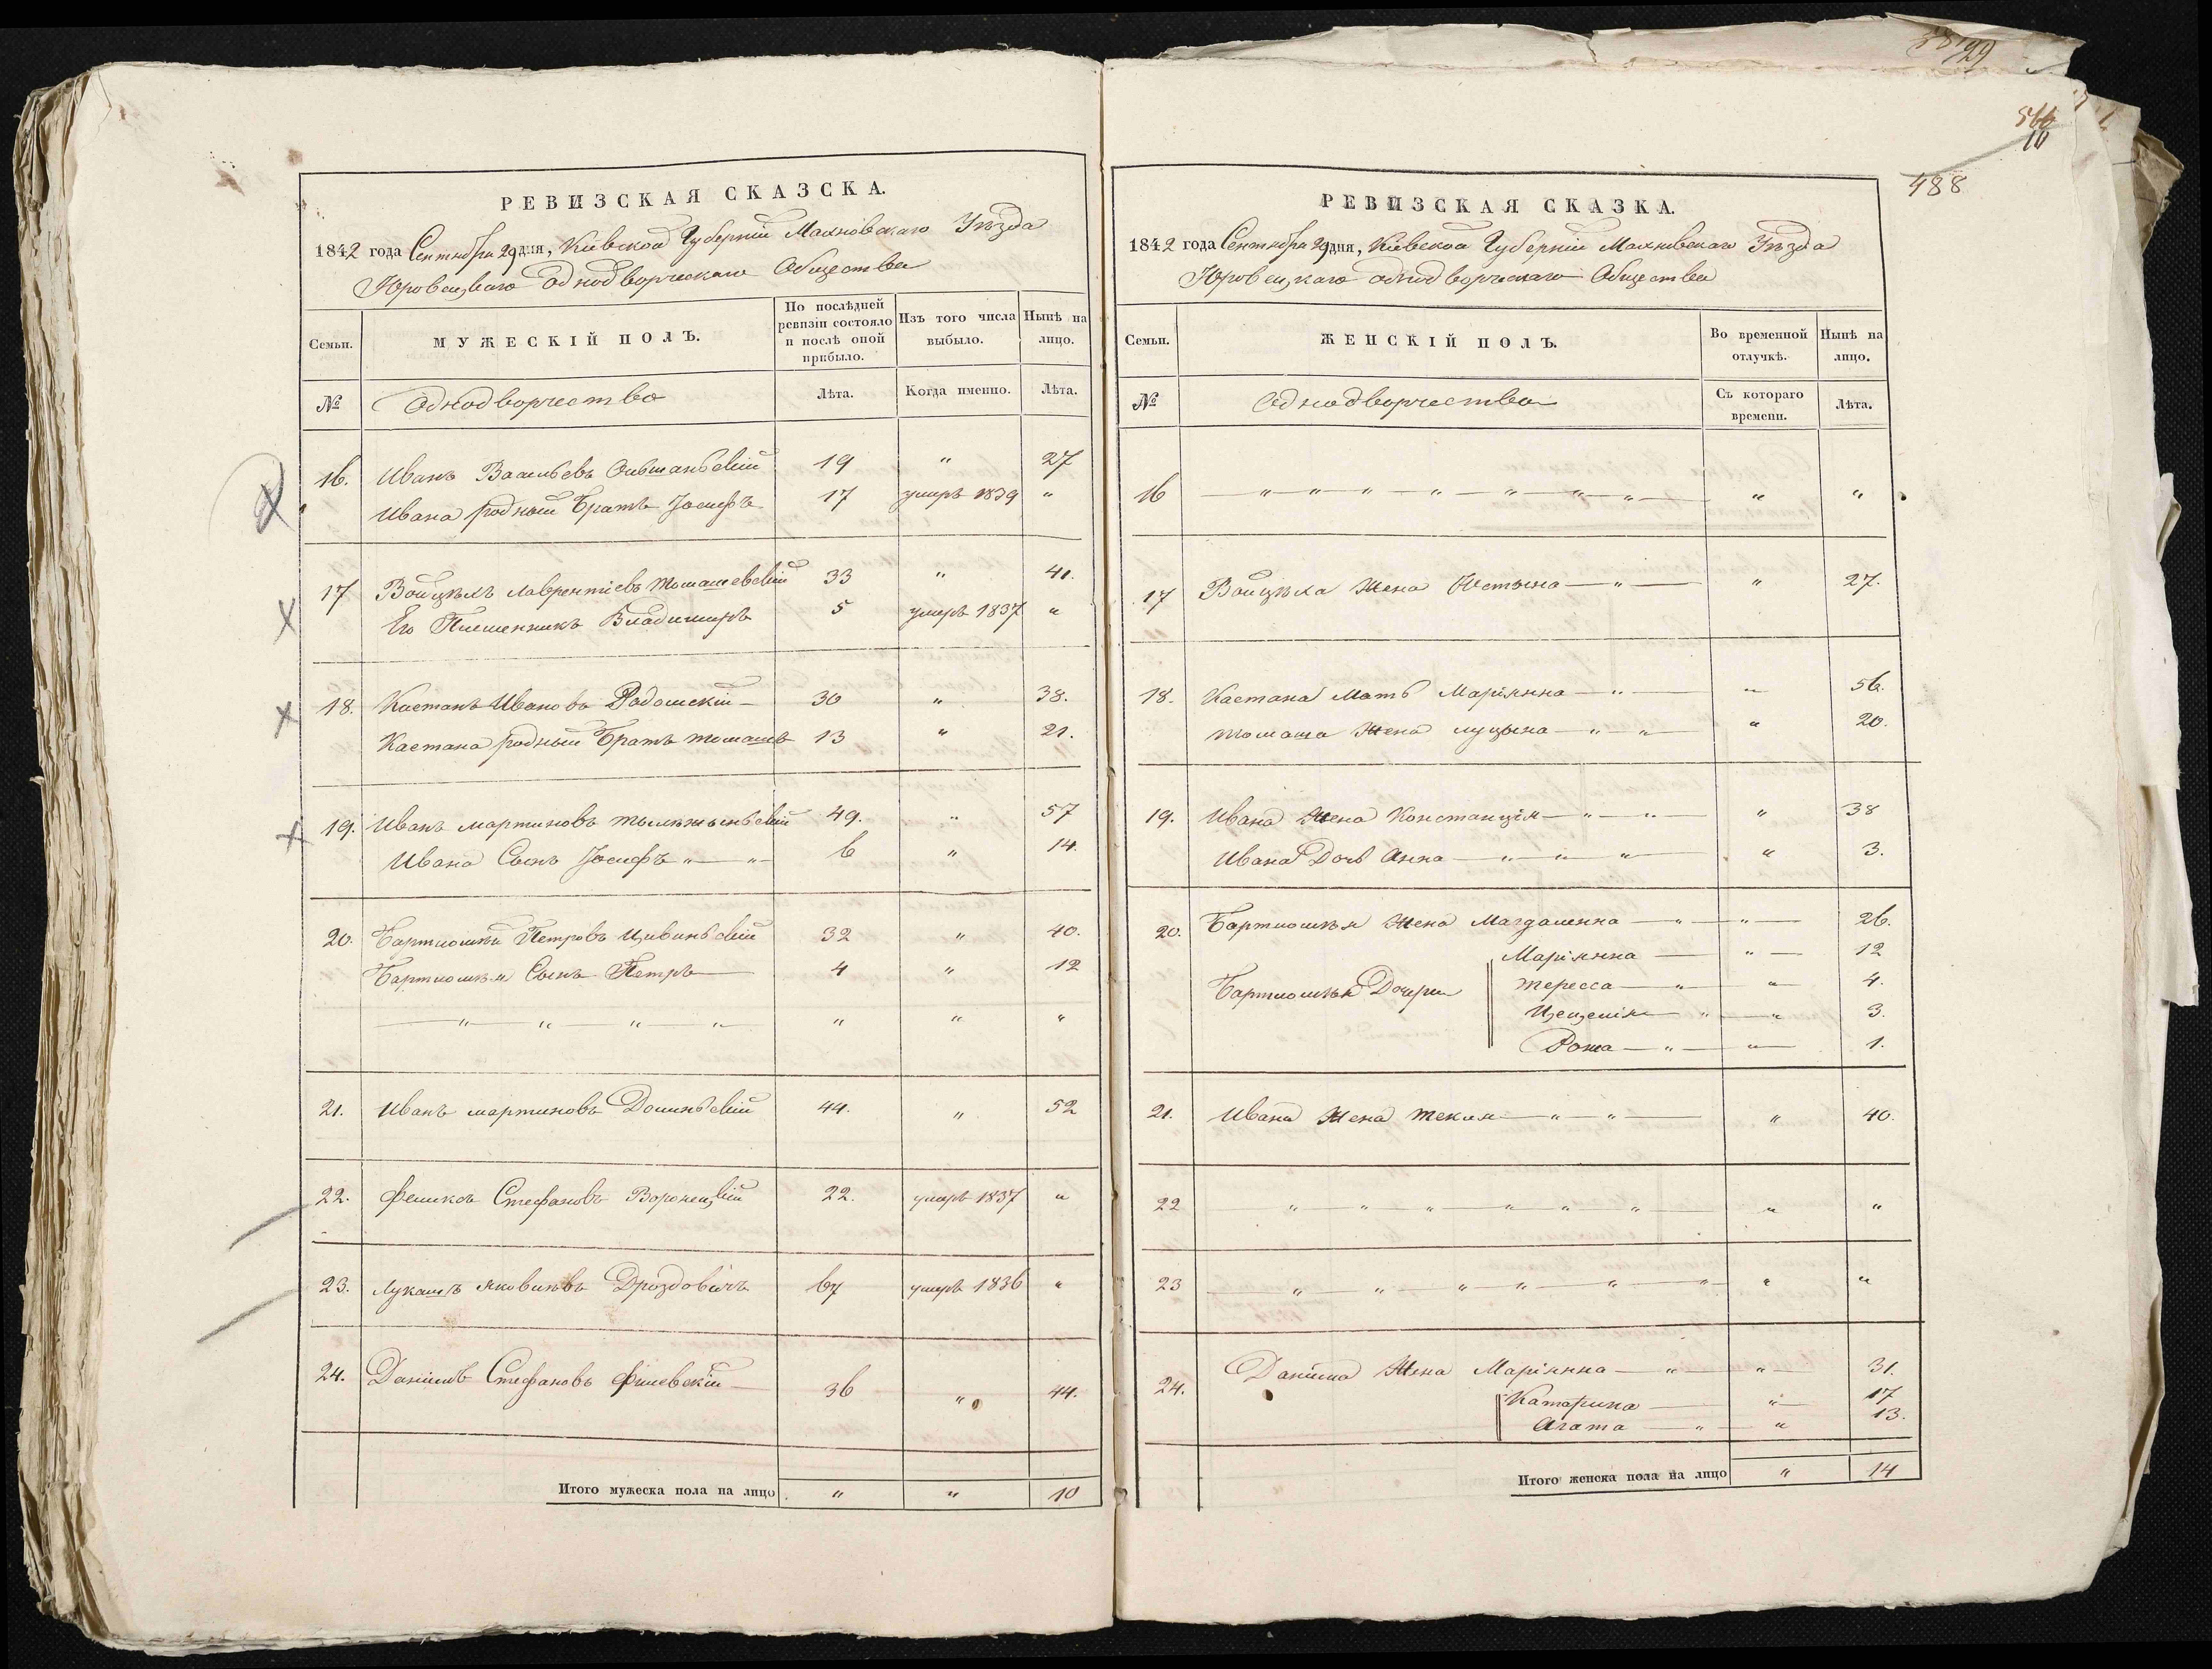 РЕВИЗСКАЯ СКАЗСКА.
1842 года Сентября 29 дня, Кіевской Губерніи Махновскаго Уѣзда
Юровецкаго однодворческаго Общества
Семьи.
МУЖЕСКІЙ ПОЛЪ.
По послѣдней ревизіи состояло и послѣ оной прибыло.
Изъ того числа выбыло.
Нынѣ на лицо.
№
Однодворчество
Лѣта.
Когда именно.
Лѣта.
16. Иванъ Васильевъ 19 " 27
Ивана родный Братъ Іосифъ 17 умеръ 1839 "
17 Войцѣхъ Лаврентіевъ Томашевскій 33 " 41.
Его Племенникъ Владимиръ 5 умеръ 1837 "
18. Каетанъ Ивановъ Радомскій 30 " 38.
Каетана родный Братъ Томашъ 13 " 21.
19. Иванъ Мартиновъ 49. " 57
Ивана Сынъ Іосифъ " " 6 " 14.
20. Бартломѣй Петровъ Цивинскій 32 " 40.
Бартломѣя Сынъ Петръ 4 " 12
" " " " " " "
21. Иванъ Мартиновъ Долинскій 44. " 52
22. Феликсъ Стефановъ Воронецкій 22. умеръ 1837 "
23. Лукашъ Яковлевъ Дроздовичъ 67 умеръ 1836 "
24. Данiилъ Стефановъ Филевскій 36 " 44.
Итого мужеска пола на лицо " " 10
566
10
488
РЕВИЗСКАЯ СКАЗКА.
1842 года Сентября 29 дня, Кіевской Губерніи Махновскаго Уѣзда
Юровецкаго однодворческаго Общества
Семьи.
ЖЕНСКІЙ ПОЛЪ.
Во временной отлучкѣ.
Нынѣ на лицо.
№
Однодворчества
Съ котораго времени.
Лѣта.
16 " " " " " " " " "
17 Войцѣха Жена Юстына " " 27.
18. Каетана Мать Маріянна " " 56.
Томаша Жена Луцына " " " 20.
19. Ивана Жена Констанція " " " 38
Ивана Дочь Анна " " " " 3.
20. Бартломѣя Жена Магдаленна " " 26.
Маріянна " 12
Бартломѣя Дочери Тересса " " 4.
Цецелія " " 3.
Рожа " " 1.
21. Ивана Жена Текля " " " 40.
22 " " " " " " " "
23 " " " " " " " "
24. Даніила Жена Маріянна " " 31.
Катарина " 17
Агата " " 13.
Итого женска пола на лицо " 14